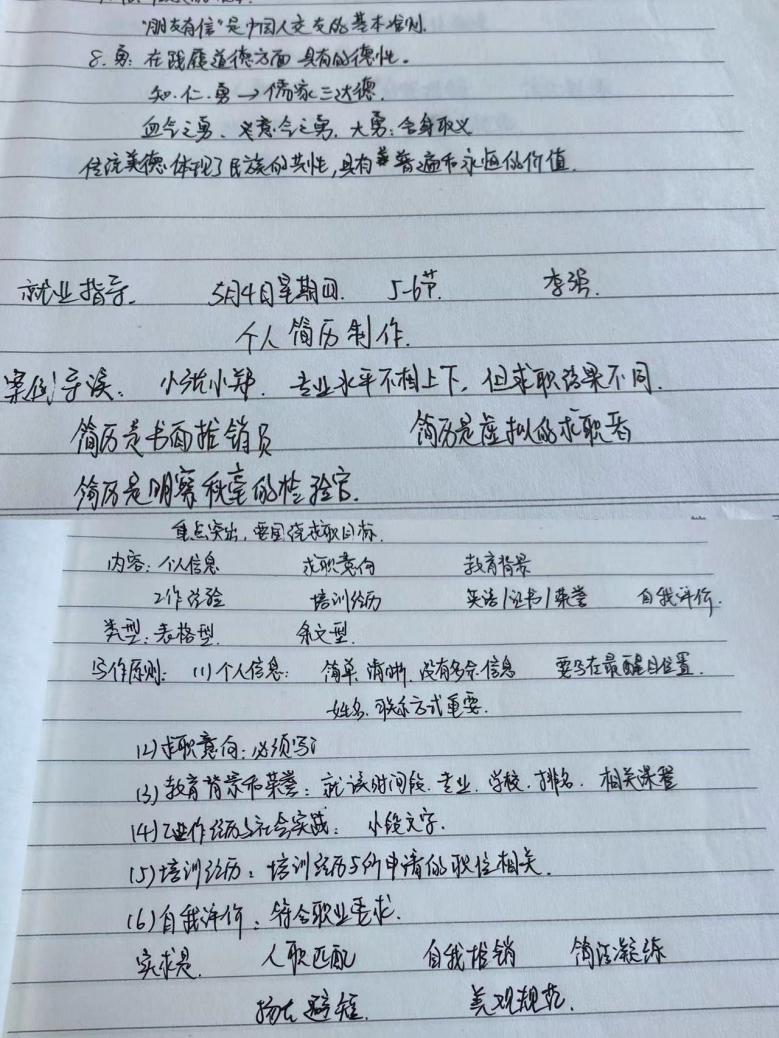 "朋友有信"是中国人交友的基本准则.
8.勇:在践履道德方面具有的德性。
知.仁.勇→儒家三达德.
血气之勇、义意气之勇.大勇:舍身取义
传统美德体现了民族的共性,具有普遍而永恒的价值.
就业指导. 5月4日星期四. 5-6节. 李强.
个人简历制作.
案例导读: 小沈小郑.专业水平不相上下,但求职结果不同.
简历是书面推销员 简历是虚拟的求职者
简历是明察秋毫的检验官.
重点突出,要围绕求职目标.
内容:个人信息 求职意向 教育背景
工作经验 培训经历 英语/证书/荣誉 自我评价.
类型:表格型. 条文型.
写作原则: (1)个人信息: 简单.清晰.没有多余信息 要写在最醒目位置.
姓名.联系方式重要.
(2)求职意向:必须写
(3)教育背景和荣誉:就读时间段.专业.学校.排名.相关课程
(4)工作经历与社会实践: 小段文字.
(5)培训经历:培训经历与所申请的职位相关.
(6)自我评价:符合职业要求.
实求是. 人职匹配 自我推销 简洁凝练
扬长避短. 美观规范.